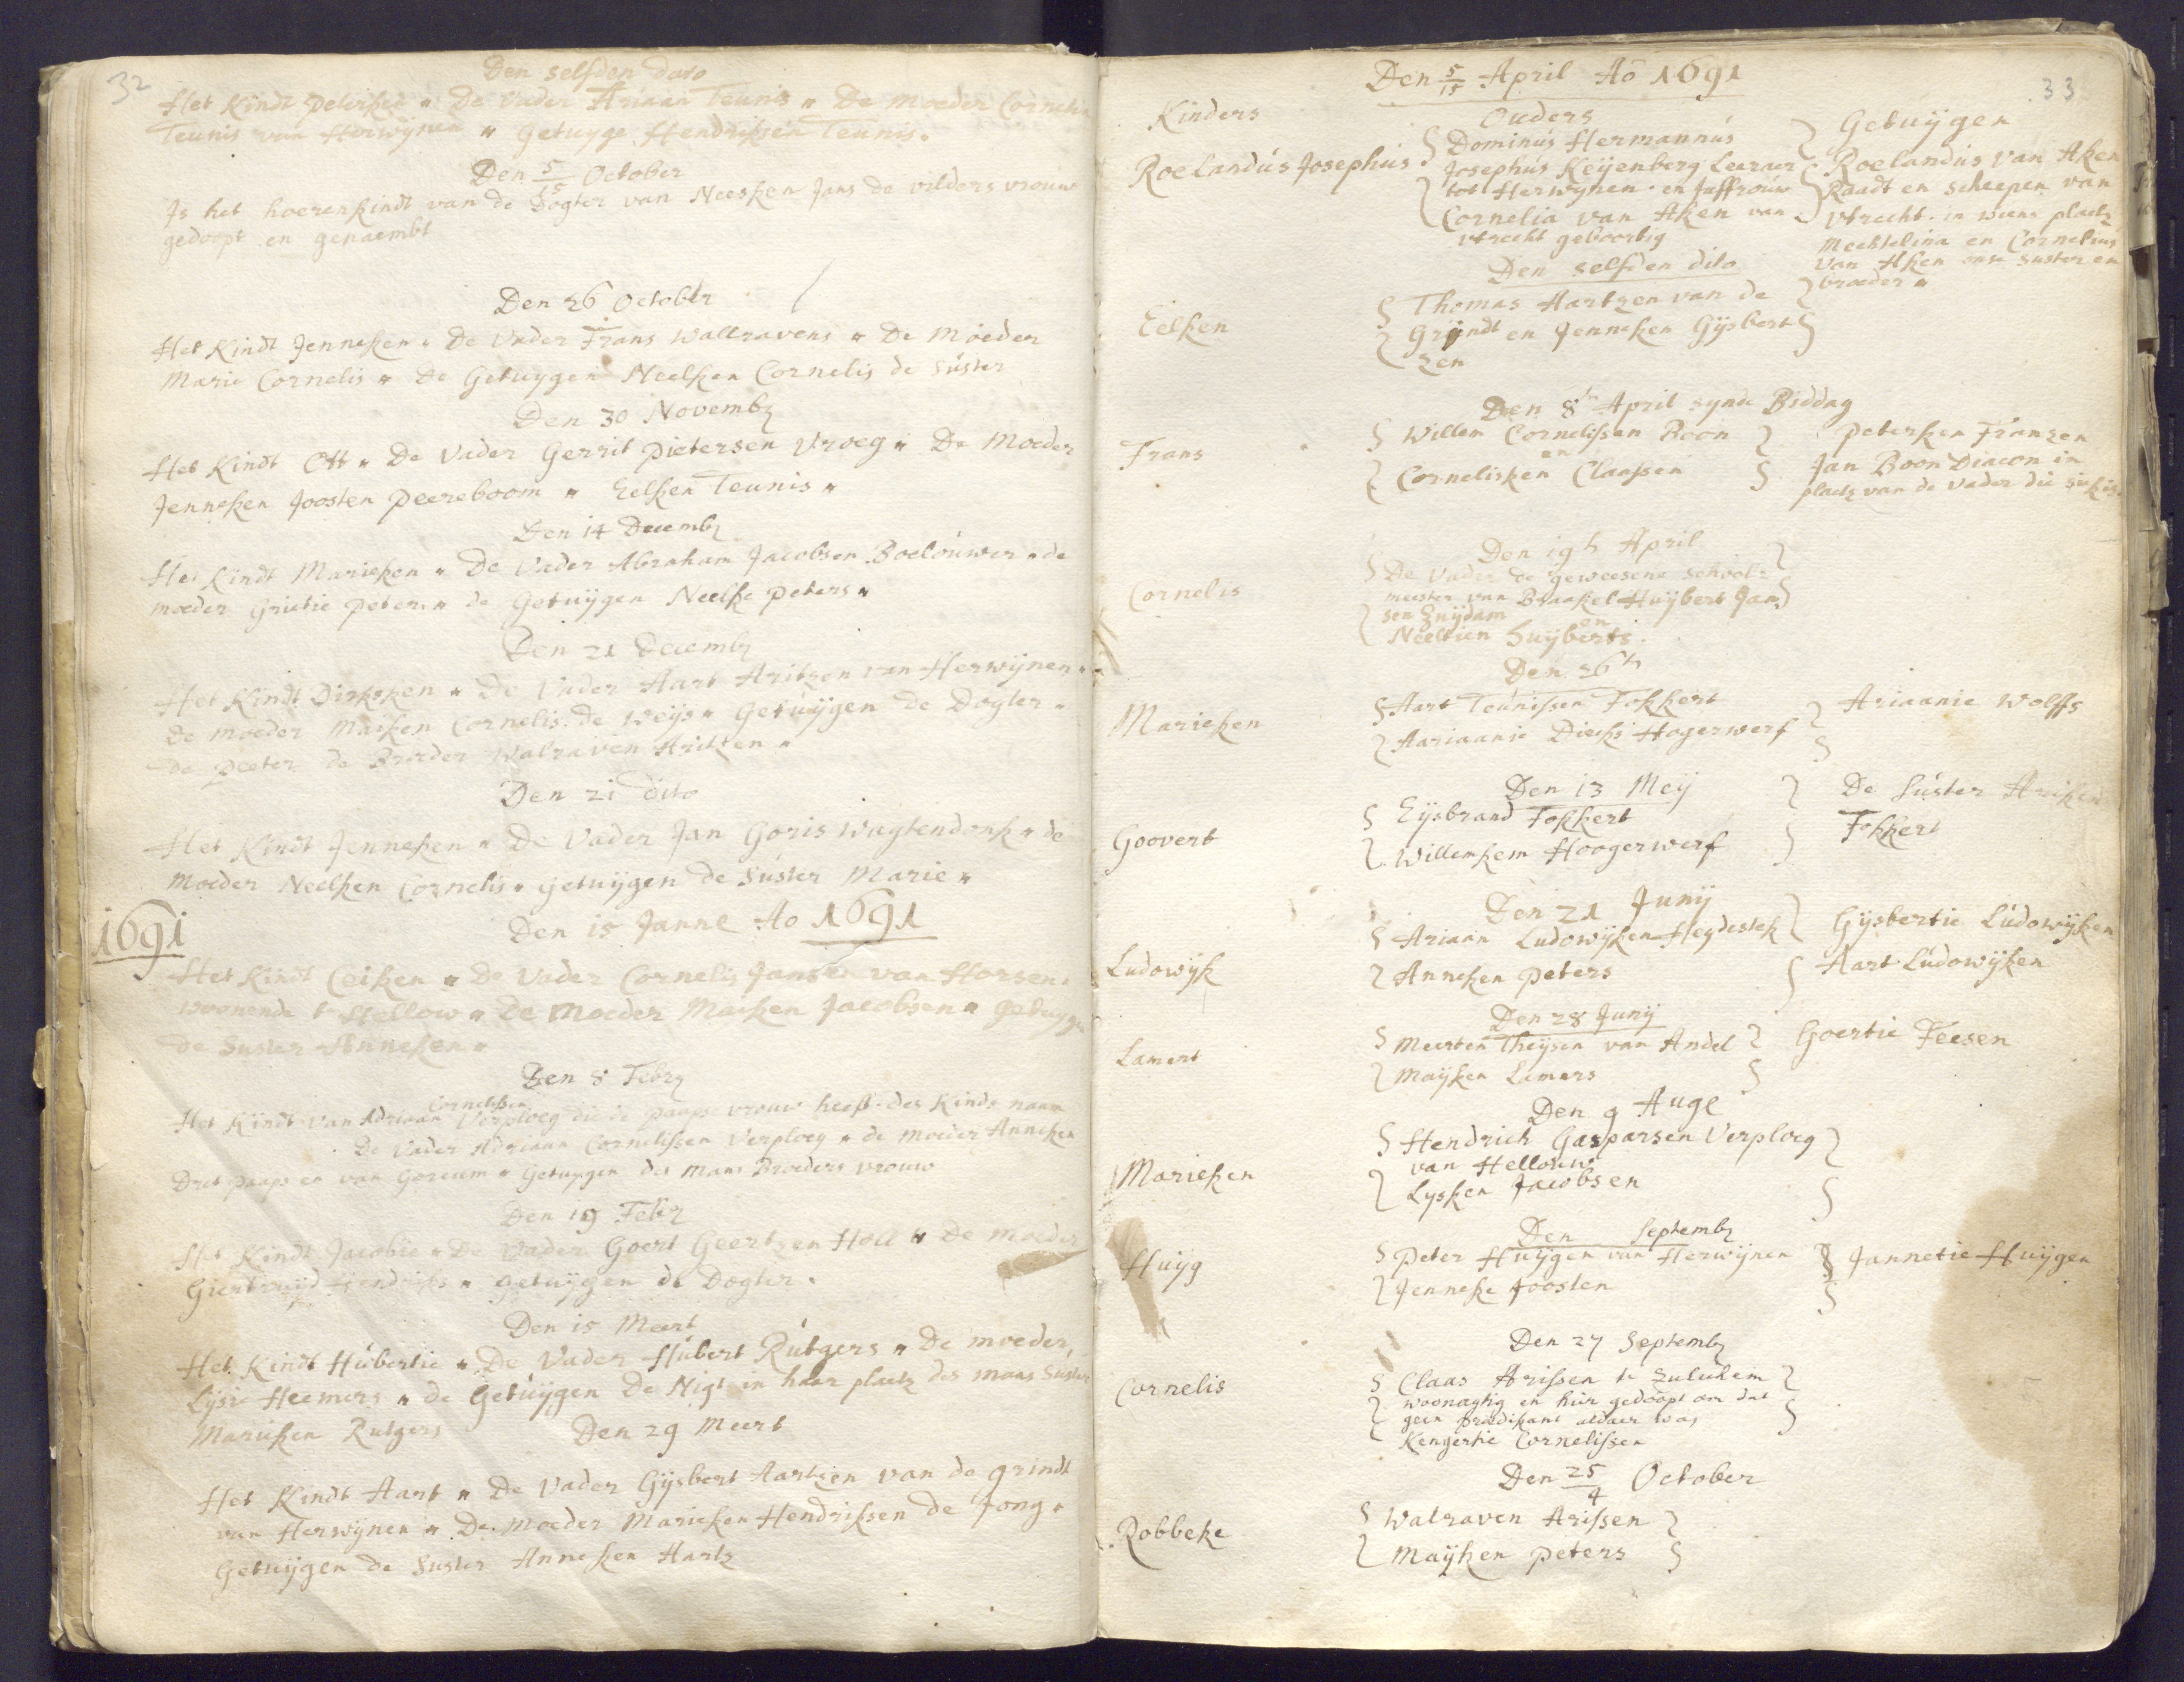 32
Den selfden dato
Het Kindt peterken " De Vader Ariaan Teunis " De moeder Cornelia
Teunis van Herwijnen " getuyge Hendriksen Teunis.
Den 5/15 October
Is het hoerenkindt van de Dogter van Neesken Jans de vilders vrouw
gedoopt en genaembt
Den 26 October
Het Kindt Jenneken " De Vader Frans Wallravens " De Moeder
Marie Cornelis " De Getuygen Neelken Cornelis de Suster
Den 30 Novemb
Het Kindt Ott " De Vader Gerrit Pietersen Vroeg " De Moeder
Jenneken Joosten Peereboom " Eelken Teunis "
Den 14 Decemb
Het Kindt Marieken " De Vader Abraham Jacobsen Boelouwer " de
moeder Grietie peters " de Getuijgen Neelke peters "
Den 21 Decemb
Het Kindt Dirksken " De Vader Aart Aritzen van Herwijnen "
De moeder Maiken Cornelis de Weijs " Getuijgen de Dogter "
de peeter de Broeder Walraven
Den 21 dito
Het Kindt Jenneken " De Vader Jan Goris Wagtendonk " de
Moeder Neelken Cornelis " getuijgen de Suster Marie "
1691
Den 15 Janne Ao 1691
Het Kindt Ceiken " De Vader Cornelis Jansen van Horsen
woonende te Hellow " De Moeder Maiken Jacobsen " getuyge
de Suster Anneken "
Den 8 Feb
Cornelissen
Het Kindt van Adriaan Verploeg die de paapse vrouw heeft des Kinds naam
De Vader Adriaan Cornelissen Verploeg " de moeder Anneken
paaps en van Gorcum " Getuygen des mans Broeders vrouw
Den 19 Feb
Het Kindt Jacobie " De Vader Goert Geertzen Holl " De Moeder
Hendriks " getuijgen de Dogter.
Den 15 Meert
Het Kindt Hubertie " De Vader Hubert Rutgers " De moeder,
Lijsie Heemers " de Getuijgen De Nigt in haar plaetz des mans Suster
Marieken Rutgers
Den 29 Meert
Het Kindt Aart " De Vader Gijsbert Aartzen van de grindt
van Herwijnen " De moeder Marieken Hendriksen de Jong "
Getuijgen de Suster Anneken Aartz
33
Den 5/15 April Ao 1691
Kinders Ouders Getuijgen
Roelandus Josephus Dominus Hermannus
Josephus Keijenberg Leeraer
tot Herwijnen en Juffrouw
Cornelia van Aken van
Vtrecht geboortig
Roelandus van Aken
Raadt en Scheepen van
Vtrecht. in wiens plaetz
Mechtelina en Cornelius
van Aken onse suster en
broeder "
Den selfden dito
Eelken Thomas Aartzen van de
Grijndt en Jenneken Gijsbert
zen
Den 8 April synde Biddag
Frans Willem Cornelissen Boon
en
Cornelisken Claassen
Peterken Franzen
Jan Boon Diacon in
plaetz van de Vader die siek is
Den 19 April
Cornelis De Vader de geweesene school
meester van Braakel Huijbert Jan
sen Zuijdam
en
Neeltien Huijberts.
Den 26
Marieken Aart Teunissen Fokkert
Aariaanie Diecks Hogerwerf
Ariaanie Wolffs
Den 13 Meij
Goovert Eijsbrand Fokkert
Willemkem Hoogerwerf
De Suster Ariken
Fokkert
Den 21 Junij
Ludowijk Ariaan Ludowijken Heijdestek
Anneken peters
Gijsbertie Ludowijken
Aart Ludowijken
Den 28 Junij
Lamert Meerten Theijsen van Andel
Maijken Lamers
Goertie Feesen
Den 9 Auge
Marieken Hendrick Gasparsen Verploeg
van Hellouw
Lysken Jacobsen
Den Septemb
Huijg Peter Huijgen van Herwijnen
Jenneke Joosten
Jannetie Huijgen
Den 27 Septemb
Cornelis Claas Arissen te Zulichem
woonagtig en hier gedoopt om dat
geen predikant aldaer was
Kengertie Cornelissen
Den 25/4 October
Robbeke Walraven Arissen
Maijken peters